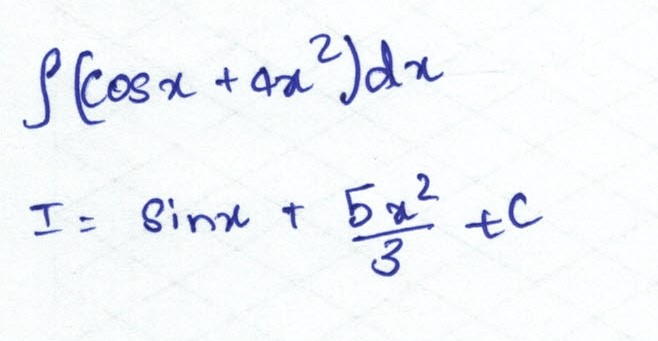 ∫(cosx + 4x²)dx
I = sinx + 5x²/3 + C